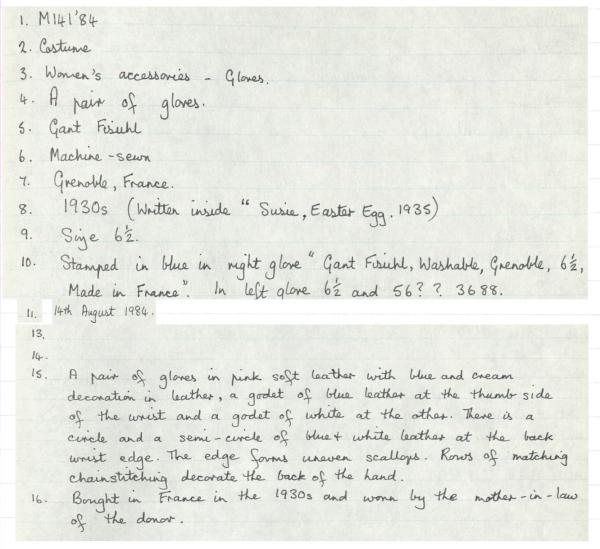 1. M141'84
2. Costume
3. Women's accessories - Gloves.
4. A pair of gloves.
5. Gant Fisuhl
6. Machine-sewn
7. Grenoble, France.
8. 1930s (Written inside " Susie, Easter Egg. 1935)
9. Size 6½.
10. Stamped in blue in right glove " Gant Fisuhl, Washable, Grenoble, 6½,
Made in France". In left glove 6½ and 56? ? 3688.
11. 14th August 1984.
13.
14.
15. A pair of gloves in pink soft leather with blue and cream
decoration in leather, a godet of blue leather at the thumb side
of the wrist and a godet of white at the other. There is a
circle and a semi-circle of blue + white leather at the back
wrist edge. The edge forms uneven scallops. Rows of matching
chainstitching decorate the back of the hand.
16. Bought in France in the 1930s and worn by the mother-in-law
of the donor.